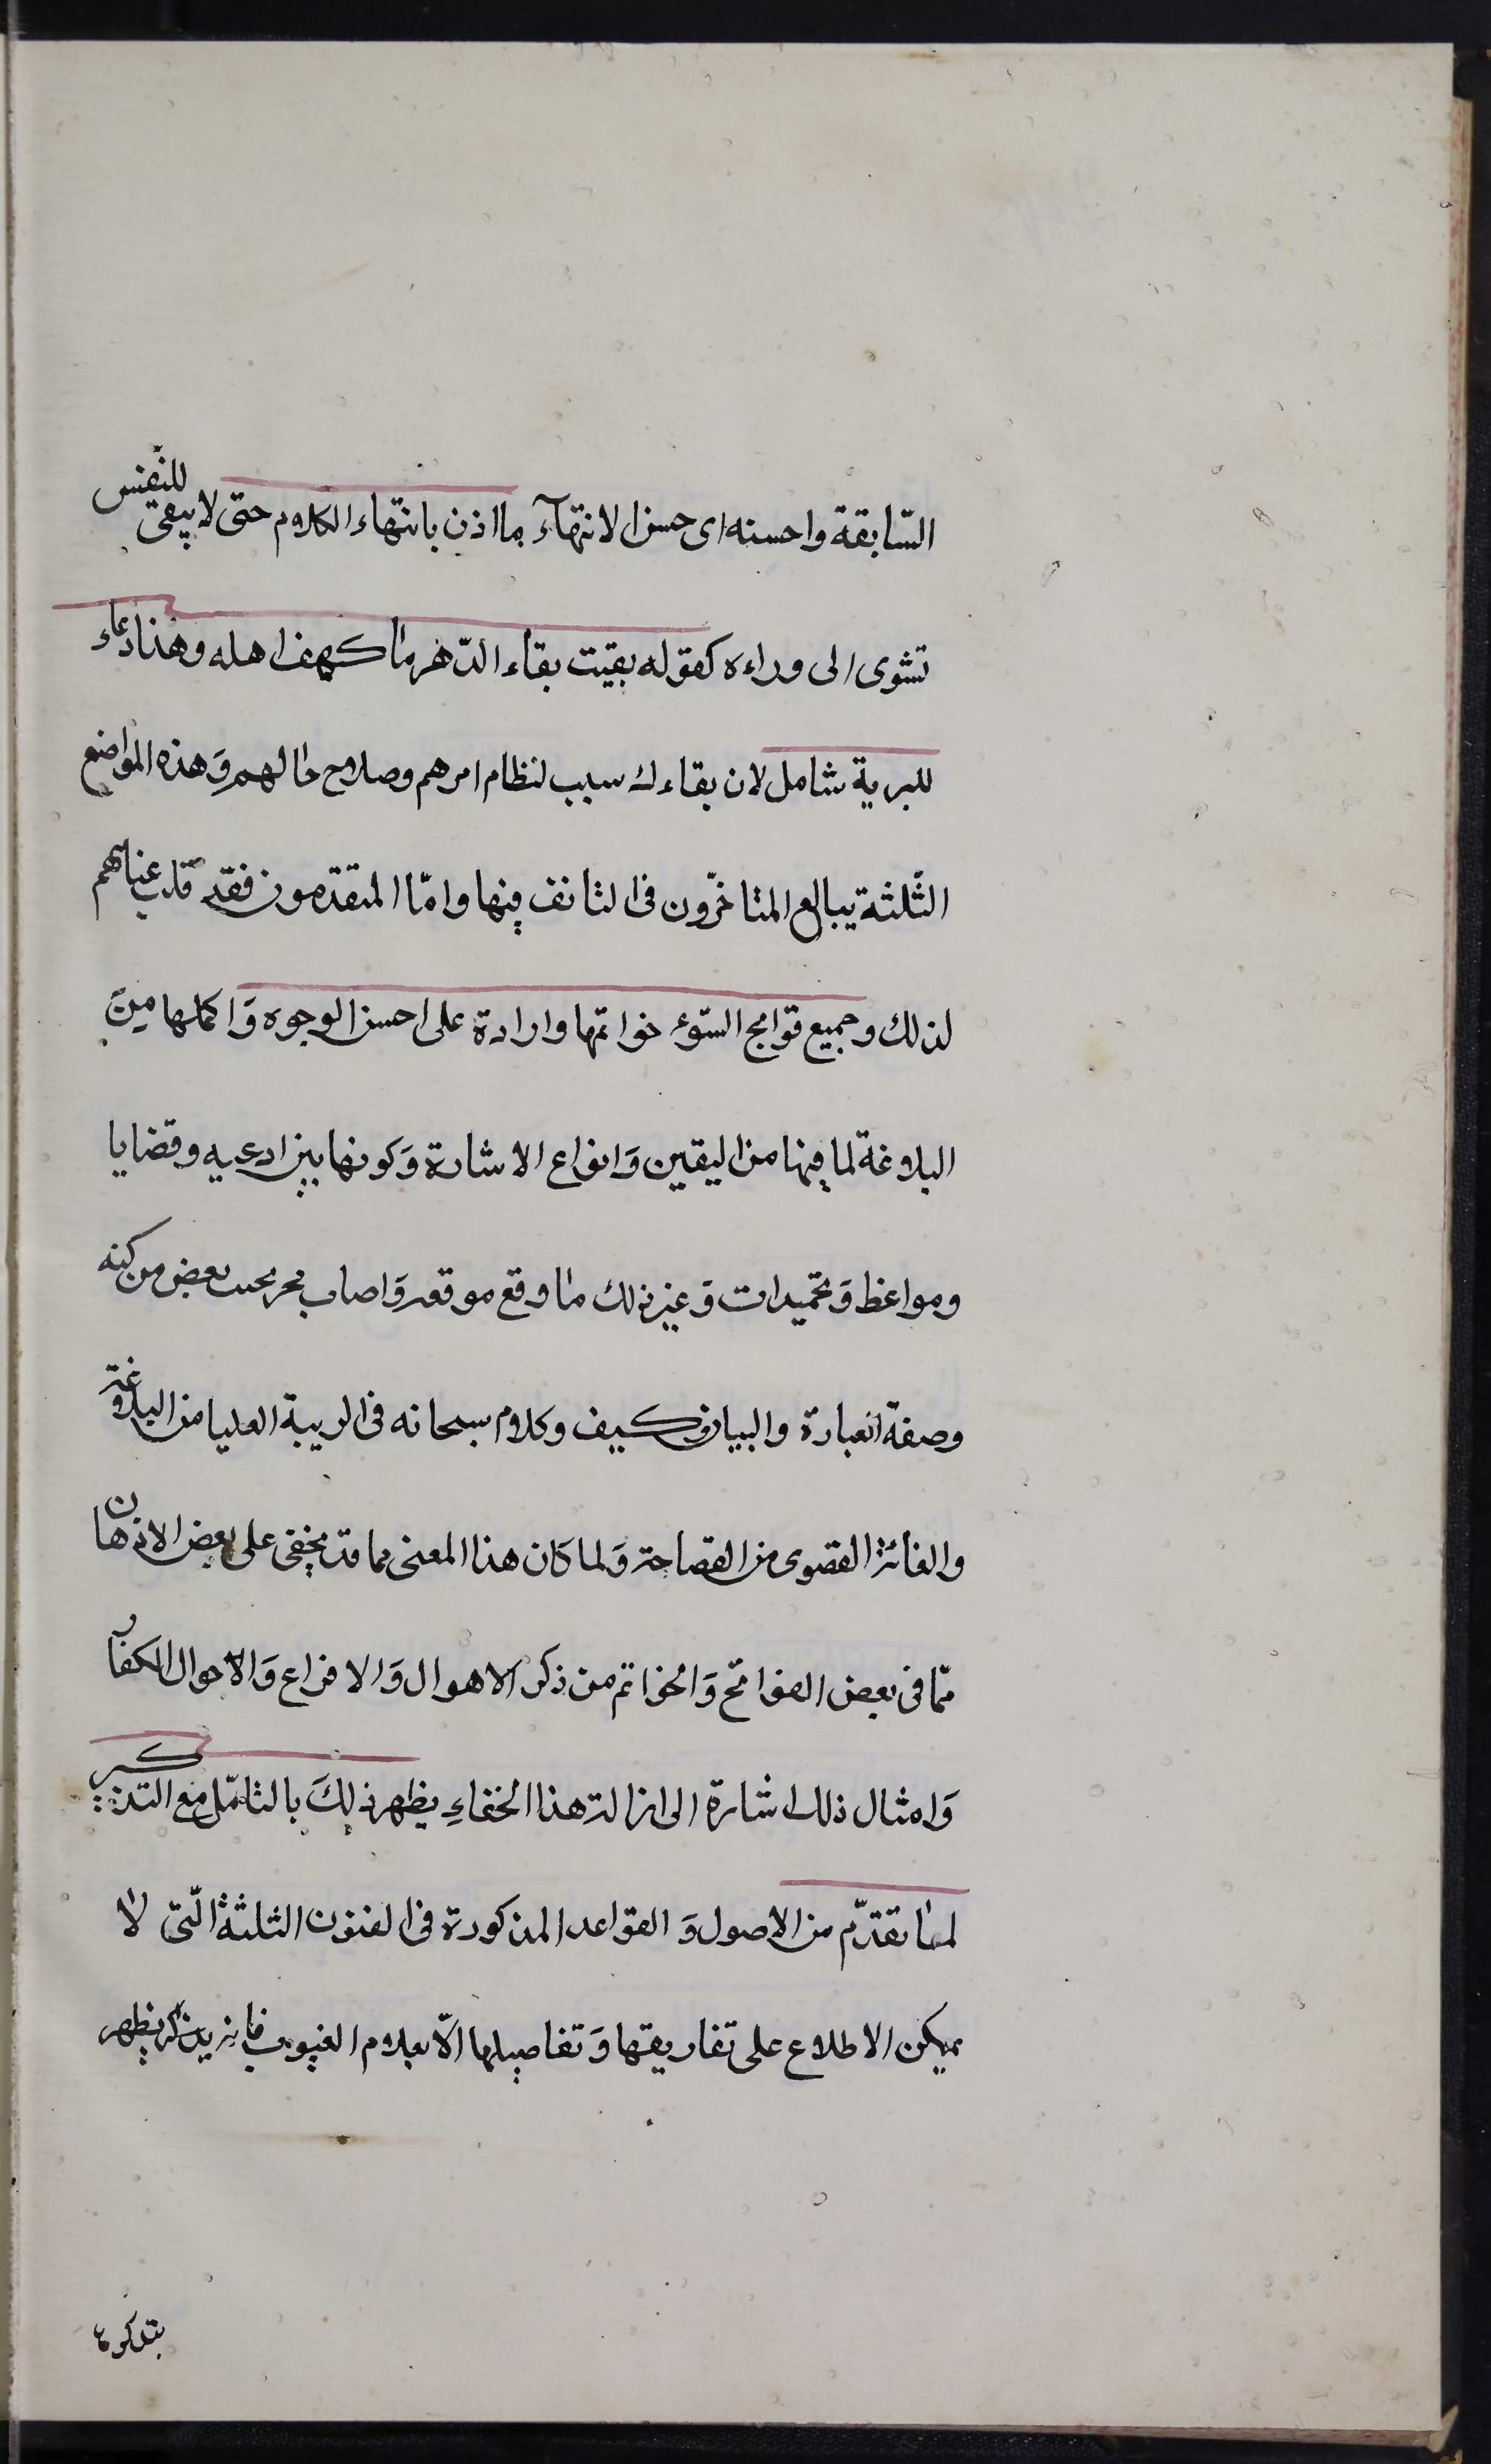 السّابقة واحسنه اى حسن الانتهآء ما اذن بانتهاء الكلام حتى لا يبقى للنّفس
تشوى الى وراءه كقوله بقيت بقاء الدّهر ما كهف اهله وهذا دعاء
للبرية شامل لان بقاءك سبب لنظام امرهم وصلاح حالهم وَهذه المواضع
الثّلثة يبالع المتاخّرون فى التانف فيها وامّا المتقدّمون فقد قلت عنايتهم
لذلك وجميع فواتح السّور خواتمها واردة على احسن الوجوه وَاكملها مِنَ
البلاغة لما فيها من اليقين وَانواع الاشارة وَكونها بين ادعيه وقضايا
ومواعظ وَتحميدات وَغير ذلك ما وقع موقعه وَاصاب بعض من كنه
وصفة العبارة والبيان كيف وكلام سبحانه فى الريبة العليا من البلاغة
والغائة القصوى من الفصاحة وَلما كان هذا المعنى مما قد يخفى على بعض الاذهان
ممّا فى بعض الفواتح وَالخواتم من ذكر الاهوال وَالافزاع وَالاحوال الكفار
وَامثال ذلك اشارة الى ازالة هذا الخفاءِ يظهر ذلِكَ بالتامّل مع التذكر
لما تقدّم من الاصول وَالقواعد المذكورة فى الفنون الثلثة الّتى لا
يمكن الاطلاع على تفاريقها وَتفاصيلها الّا بعلام الغيوب يظهر
بتذكره